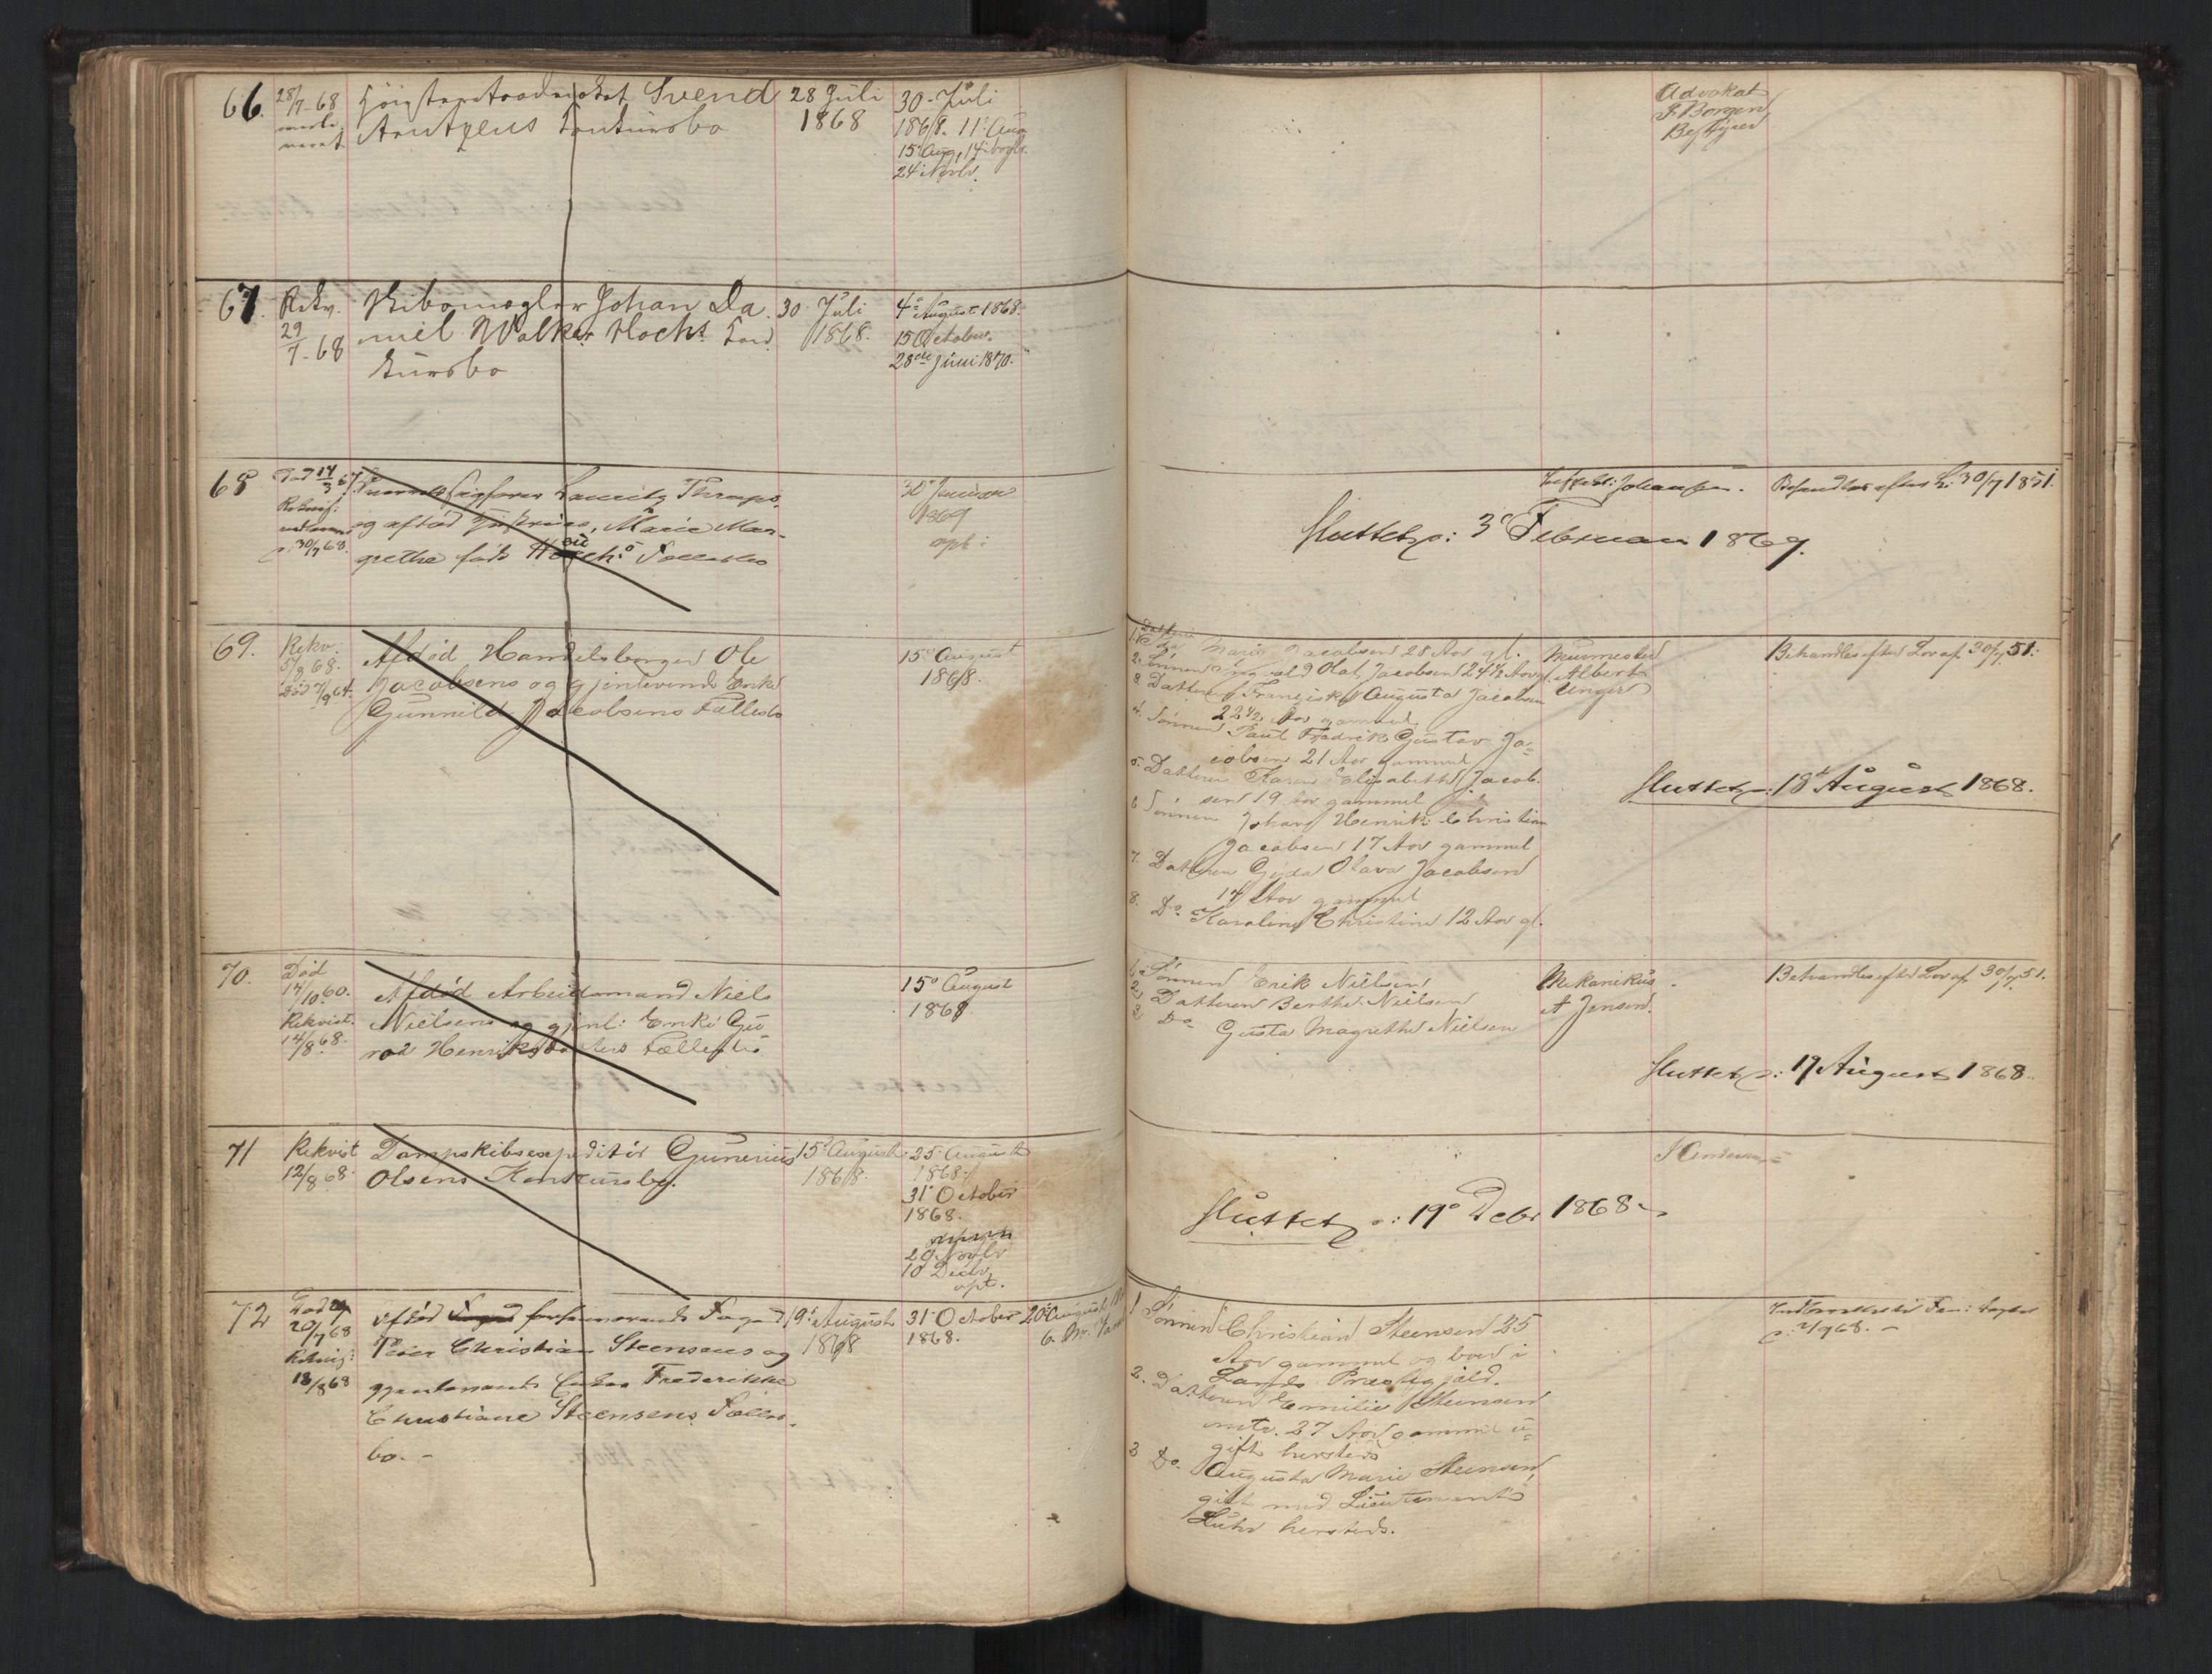 66. 28/7-68 Svend 28 Juli 30. Juli Advokat
1868 1868. 11. Aug Borgen
15. Aug, 14 Bestyrer
24 Novbr.
67. Rekv. Johan Da 30. Juli 4de August 1868.
29/7-68 niel Walker Kochs Kon 1868. 15 October.
kursbo 28de Juni 1870.
68 Død 14/3 Lauritz Behandles efter L. 30/7 1851.
og afdød Hustrues, Marie Mar- 1869
30/7 68. grethe født Fællesbo opt:
Sluttet p: 3 Februar 1869.
69. Rekv. Afdød Handelsborger Ole 15de August
5/8 68. Jacobsens og gjenlevende Enke 1868.
Død 7/9 64. Gunnild Jacobsens Fællesbo
1. Datteren Marie Jacobsen 28 Aar gl. Murmester Behandles efter Lov af 30/7 51.
2. Sønnen Olaf Jacobsen 24½ Aar gl. Albert
3. Datteren Franziska Augusta Jacobsen Unger
22½ Aar gammel
4. Sønnen Paul Fredrik Gustav Ja-
cobsen 21 Aar gammel
5. Datteren Karen Elisabeth Jacob-
sen 19 Aar gammel
Sluttet p: 18 August 1868.
6 Sønnen Johan Henrik Christian
Jacobsen 17 Aar gammel
7. Datteren Olava Jacobsen
14 Aar gammel
8. Do Karoline Christine 12 Aar gl.
70. Død Afdød Arbeidsmand Niels 15de August
14/10 60. Nielsens og gjenl: Enke Gu 1868
Rekvist. rod Henriksdatters Fællesbo
14/8 68.
1. Sønnen Erik Nielsen Mekanikus Behandles efter Lov af 30/7 51.
2. Datteren Berthe Nielsen A Jensen.
3 Do Gusta Magrethe Nielsen
Sluttet p: 19 August 1868.
71 Rekvist Dampskibsexpeditør Gunerius 15 August 25 August
12/8 68. Olsens Konkursbo. 1868. 1868.
31 October
1868.
20 Novbr
10 Decbr
opt.
Sluttet p: 19 Decbr 1868
72 Død Afdød forhenværende Foged 19 August 31 October 20 August
20/7 68 Peter Christian Steensens og 1868 1868.
18/8 68 gjenlevende Enke Frederikke
Christiane Steensens Fælles-
bo. -
1 Sønnen Christian Steensen 35
Aar gammel og boer i
Lands Præstegjæld.
2. Datteren Emilie Steensen
37 Aar gammel u-
gift hersteds
3 Do Augusta Marie Steensen,
gift med Lieutenant
hersteds.